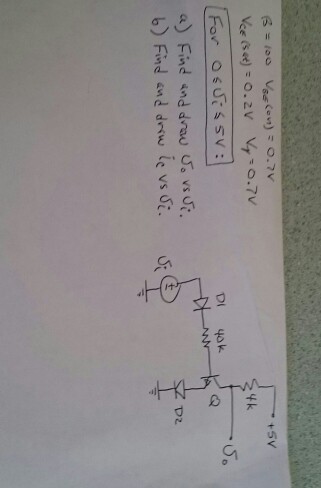 β = 100 VBE(on) = 0.7V
VCE(sat) = 0.2V Vγ = 0.7V
For 0 ≤ vi ≤ 5V :
a) Find and draw vo vs vi.
b) Find and draw ic vs vi.
+5V
4k
vo
D1
40k
Q
vi
D2